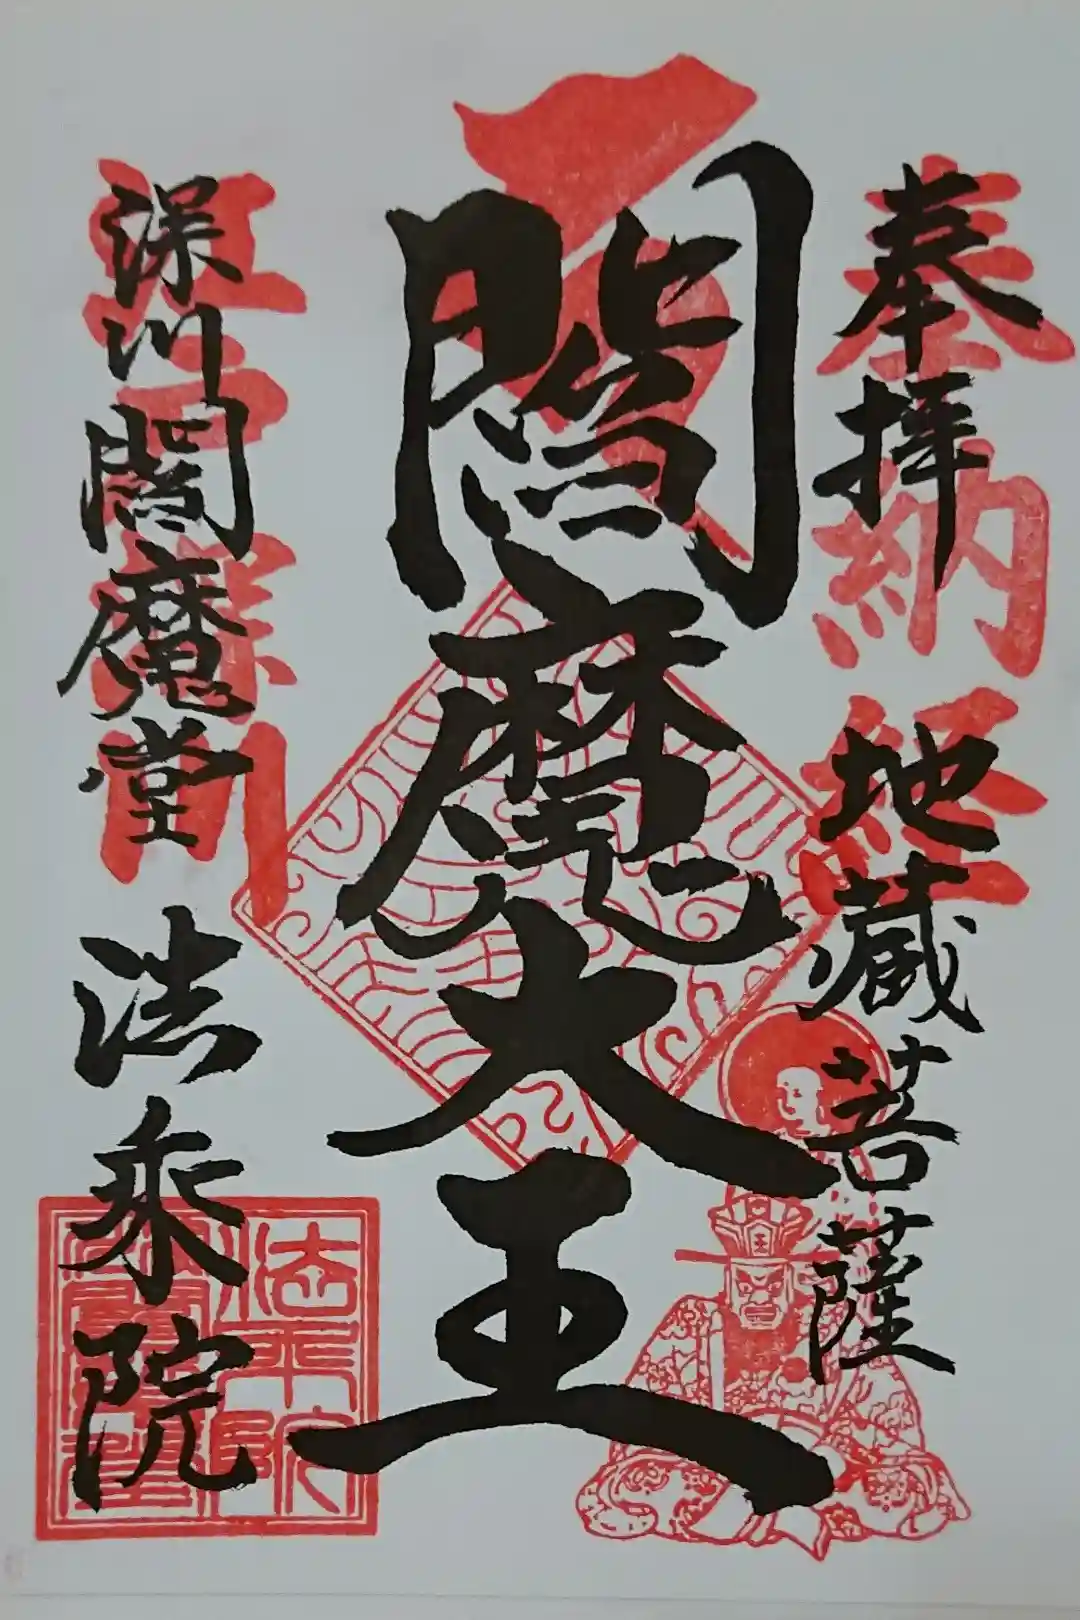 奉拝
地蔵菩薩
奉納経
閻魔大王
王
深川閻魔堂
法乗院
江戸深川
法乗院